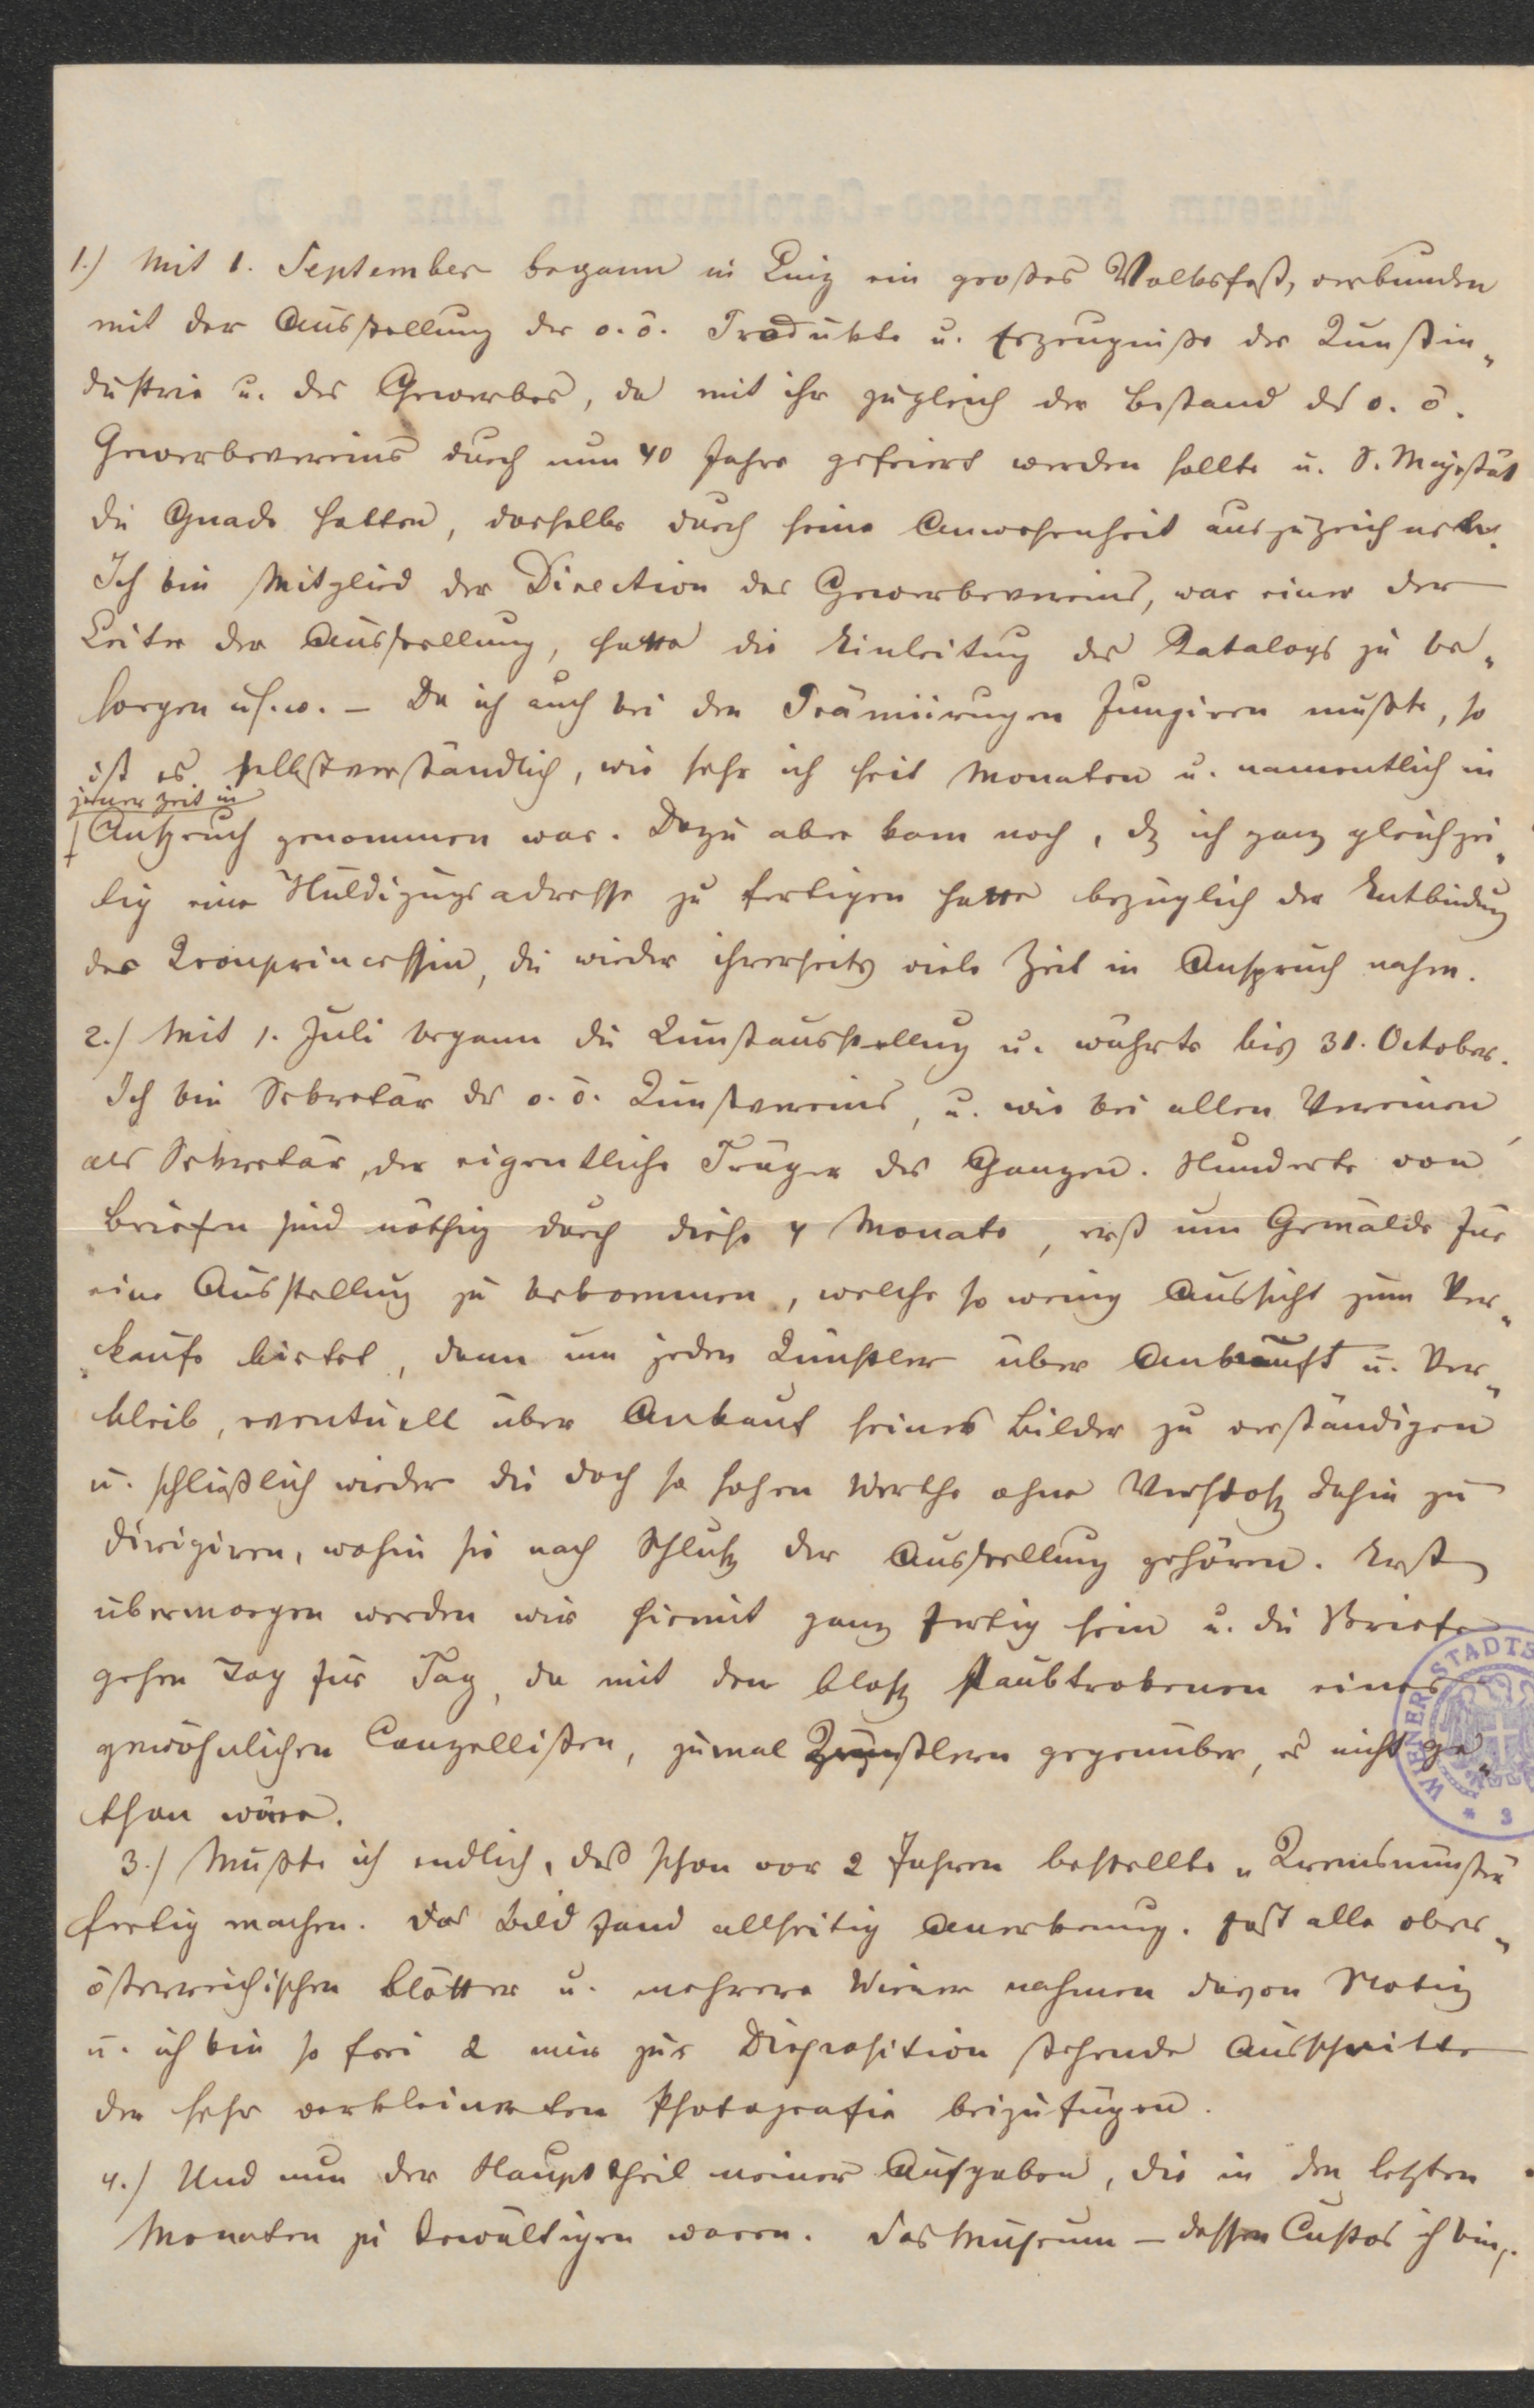 1.) Mit 1. September begann in Linz ein großes Volksfest, verbunden
mit der Ausstellung der o. ö. Produkte u. Erzeugniße der Kunstin„
dustrie u. des Gewerbes, da mit ihr zugleich der Bestand des o. ö.
Gewerbevereins durch nun 40 Jahre gefeiert werden sollte u. S. Majestät
die Gnade hatten, dasselbe durch seine Anwesenheit auszuzeichnen.
Ich bin Mitglied der Direction des Gewerbevereins, war einer der
Leiter der Ausstellung, hatte die Einleitung des Katalogs zu be„
sorgen u.s.w. – Da ich auch bei den Prämiirungen fungiren mußte, so
ist es selbstverständlich, wie sehr ich seit Monaten u. namentlich in
jener Zeit in
Anspruch genommen war. Dazu aber kam noch, dß ich ganz gleichzei„
tig eine Huldigungsadresse zu fertigen hatte bezüglich der Entbindung
der Kronprincessin, die wieder ihrerseits viele Zeit in Anspruch nahm.
2.) Mit 1. Juli begann die Kunstausstellung u. währte bis 31. October.
Ich bin Sekretär des o. ö. Kunstvereins, u. wie bei allen Vereinen,
als Sekretär, der eigentliche Träger des Ganzen. Hunderte von
Briefen sind nöthig durch diese 4 Monate, erst um Gemälde für
eine Ausstellung zu bekommen, welche so wenig Aussicht zum Ver„
kaufe bietet, dann um jeden Künstler über Ankunft u. Ver„
bleib, eventuell über Ankauf seiner Bilder zu verständigen
u. schließlich wieder die doch so hohen Werthe ohne Verstoß dahin zu
dirigiren, wohin sie nach Schluß der Ausstellung gehören. Erst
übermorgen werden wir hiemit ganz fertig sein u. die Briefe
gehen Tag für Tag, da mit den bloß staubtrokenen eines
gewöhnlichen Canzellisten, zumal Künstlern gegenüber, es nicht ge„
than wäre.
3.) Mußte ich endlich, das schon vor 2 Jahren bestellte „Kremsmünster
fertig machen. Das Bild fand allseitig Anerkenung. Fast alle ober„
österreichischen Blätter u. mehrere Wiener nahmen davon Notiz
u. ich bin so frei 2 mir zur Disposition stehende Ausschnitte
der sehr verkleinerten Photografie beizufügen.
4.) Und nun der Haupttheil meiner Aufgaben, die in den letzten
Monaten zu bewältigen waren. Das Museum – dessen Custos ich bin,
WIENER STADTB